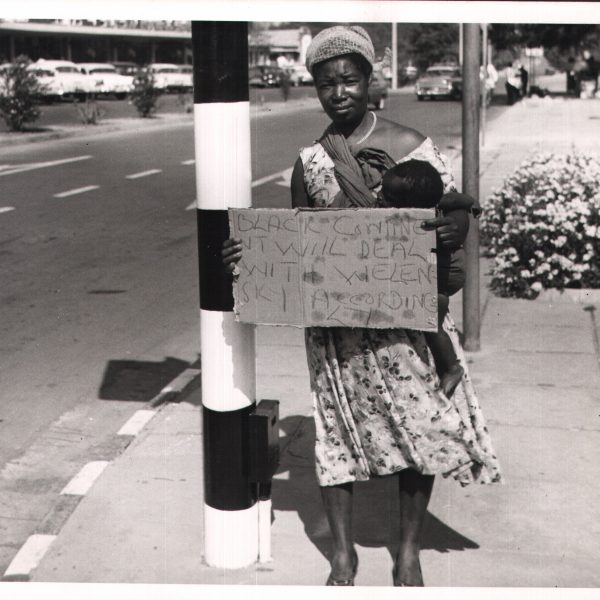 BLACK CONTINE
NT WILL DEAL
WITH WELEN
SKI ACCORDING
LY